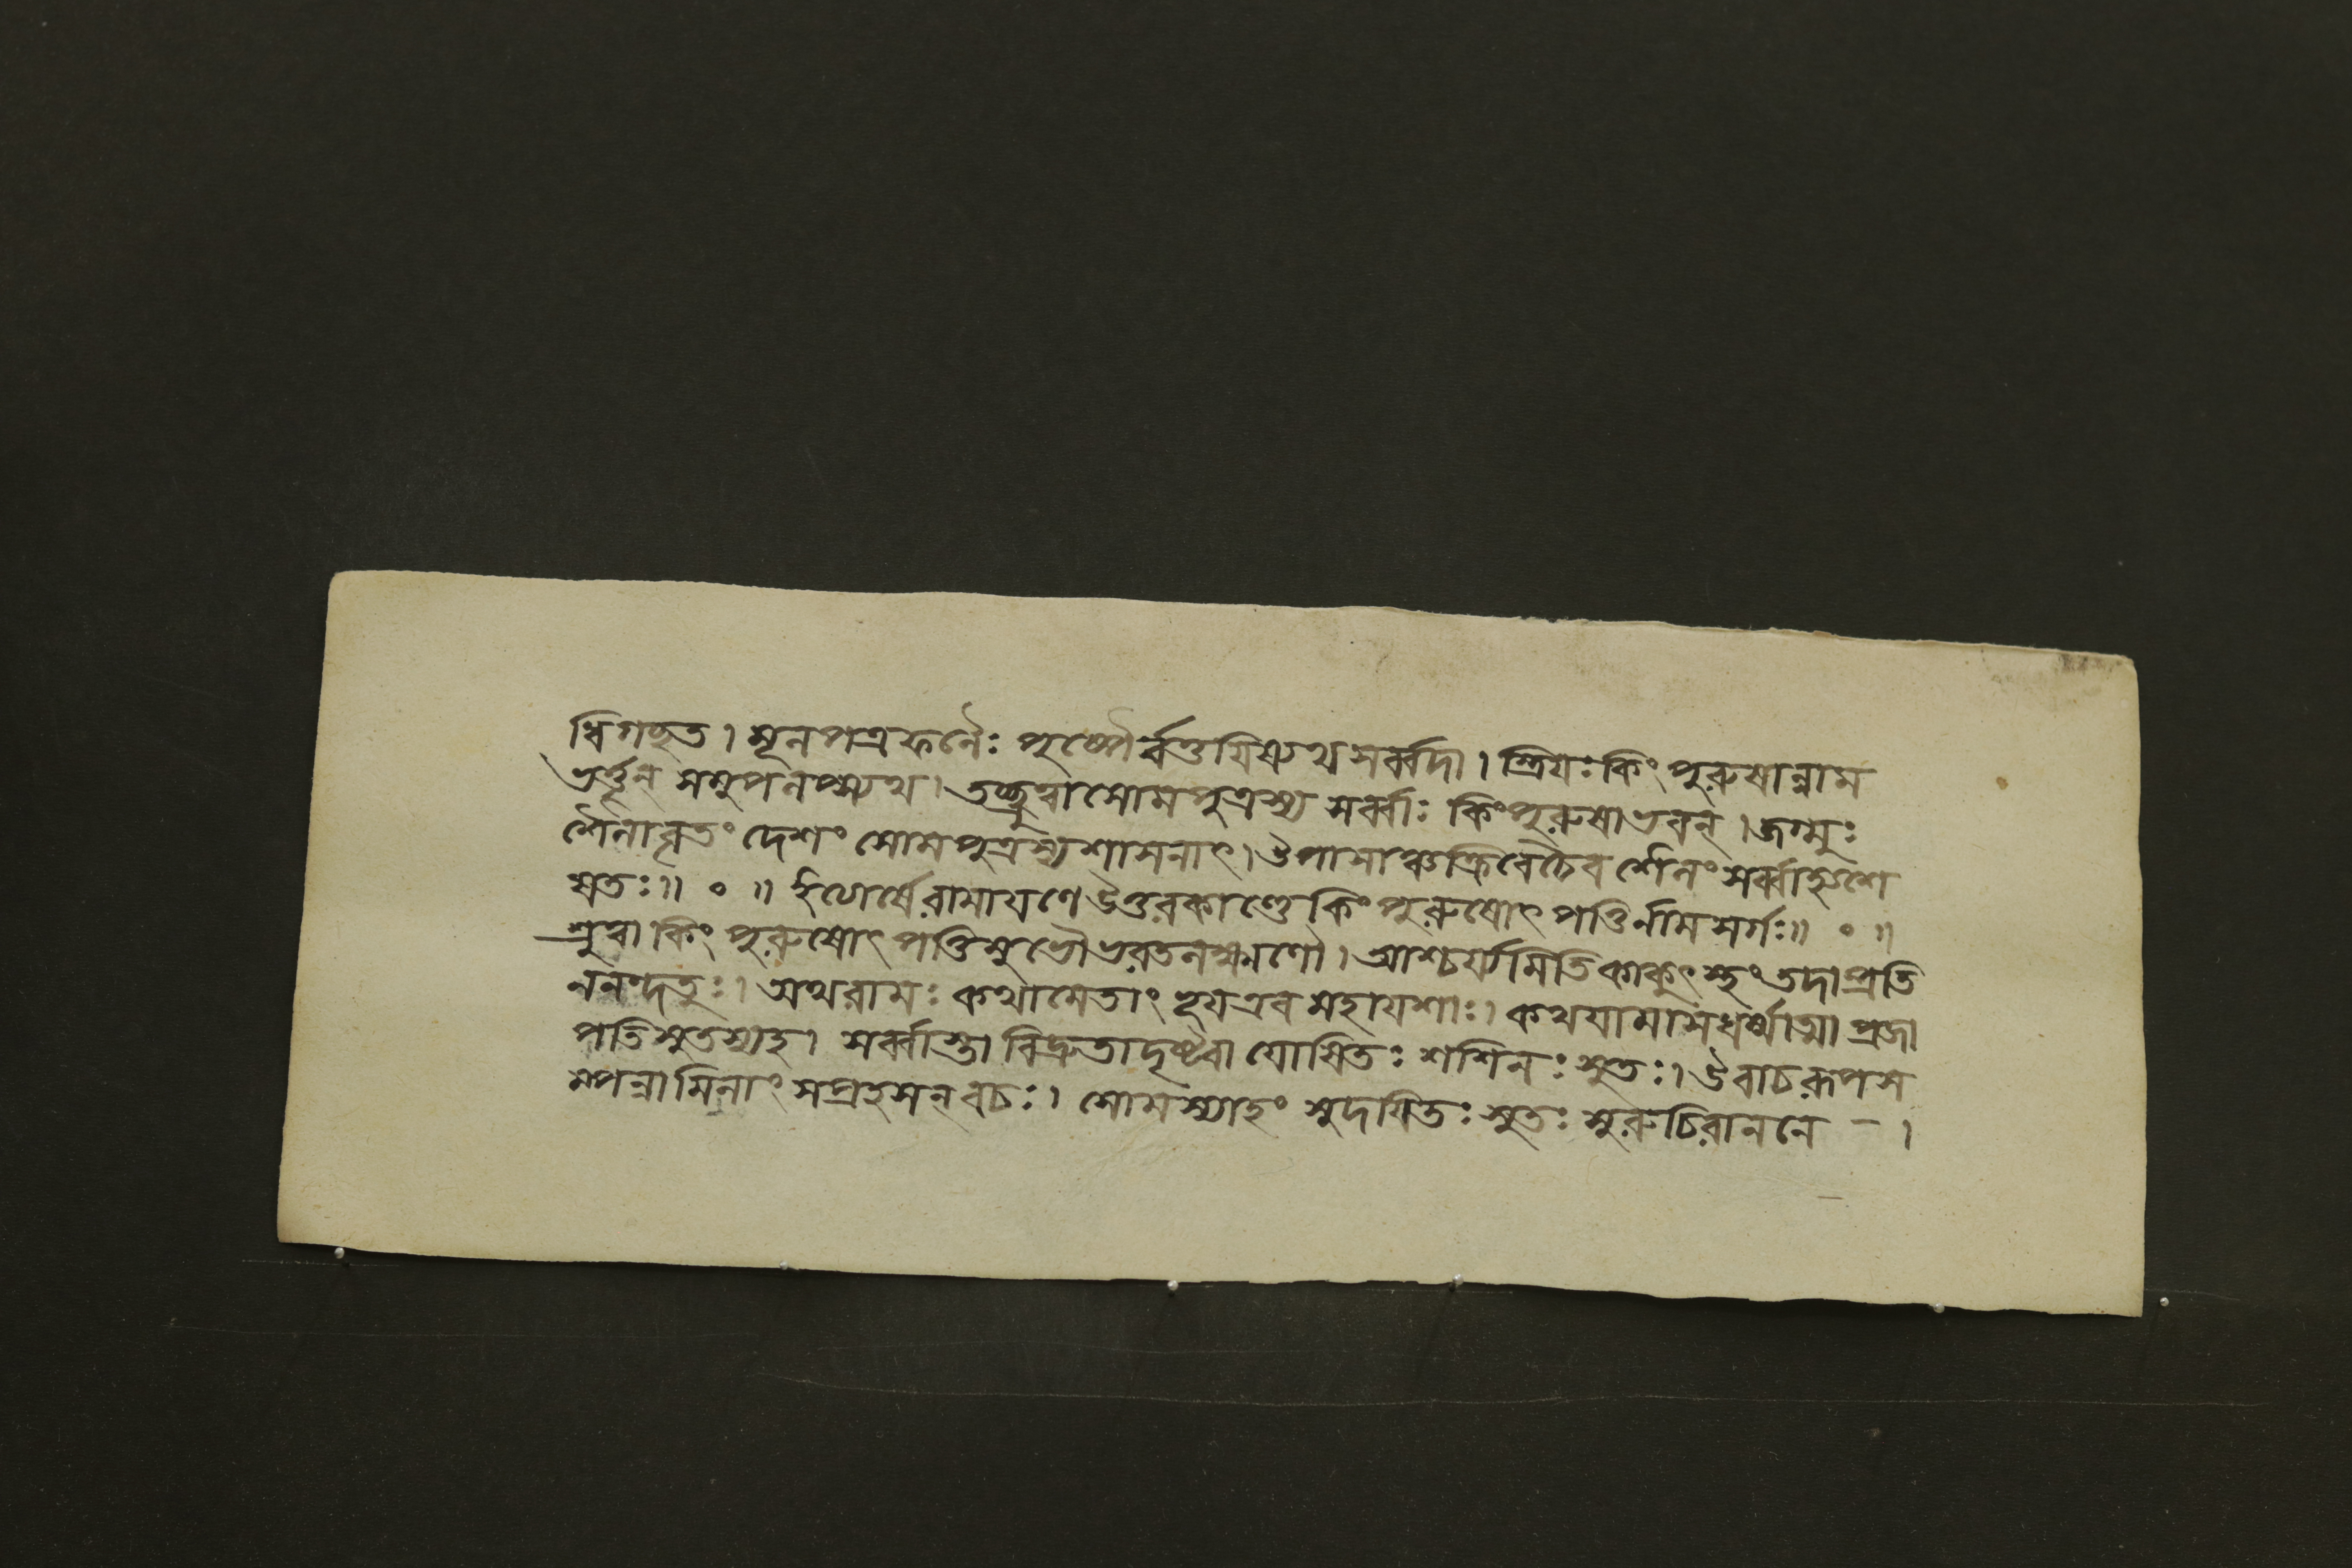 ধিগছত । মূলপত্রফলৈঃ পুষ্পৈর্ব্বর্ত্তয়িষ্যথ সর্ব্বদা । স্ত্রিয়ঃ কিংপুরুষান্নাম
ভর্ত্তৄন্ সমুপলপ্স্যথ । তচ্ছ্রুত্বা সোমপুত্রস্য সর্ব্বাঃ কিংপুরুষাভবন্ । জগ্মুঃ
শৈলাবৃতং দেশং সোমপুত্রস্য শাসনাৎ । উপাসাঞ্চক্রিরে চৈব শৈলং সর্ব্বাস্ত্বশে
ষতঃ ॥ ০ ॥ ইত্যার্ষে রামায়ণে উত্তরকাণ্ডে কিংপুরুষোৎপত্তির্নাম সর্গঃ ॥ ০ ॥
শ্রুত্বা কিংপুরুষোৎপত্তিমুভৌ ভরতলক্ষ্মণৌ । আশ্চর্য্যমিতি কাকুৎস্থং তদা প্রতি
ননন্দতুঃ । অথ রামঃ কথামেতাং ভূয় এব মহাযশাঃ । কথযামাস ধর্ম্মাত্মা প্রজা
পতিসুতস্যহ । সর্ব্বাস্তা বিদ্রুতা দৃষ্ট্বা যোষিতঃ শশিনঃ সুতঃ । উবাচ রূপস
ম্পন্নামিলাং সপ্রহসন্ বচঃ । সোমস্যাহং সুদয়িতঃ সুতঃ সুরুচিরাননে – ।